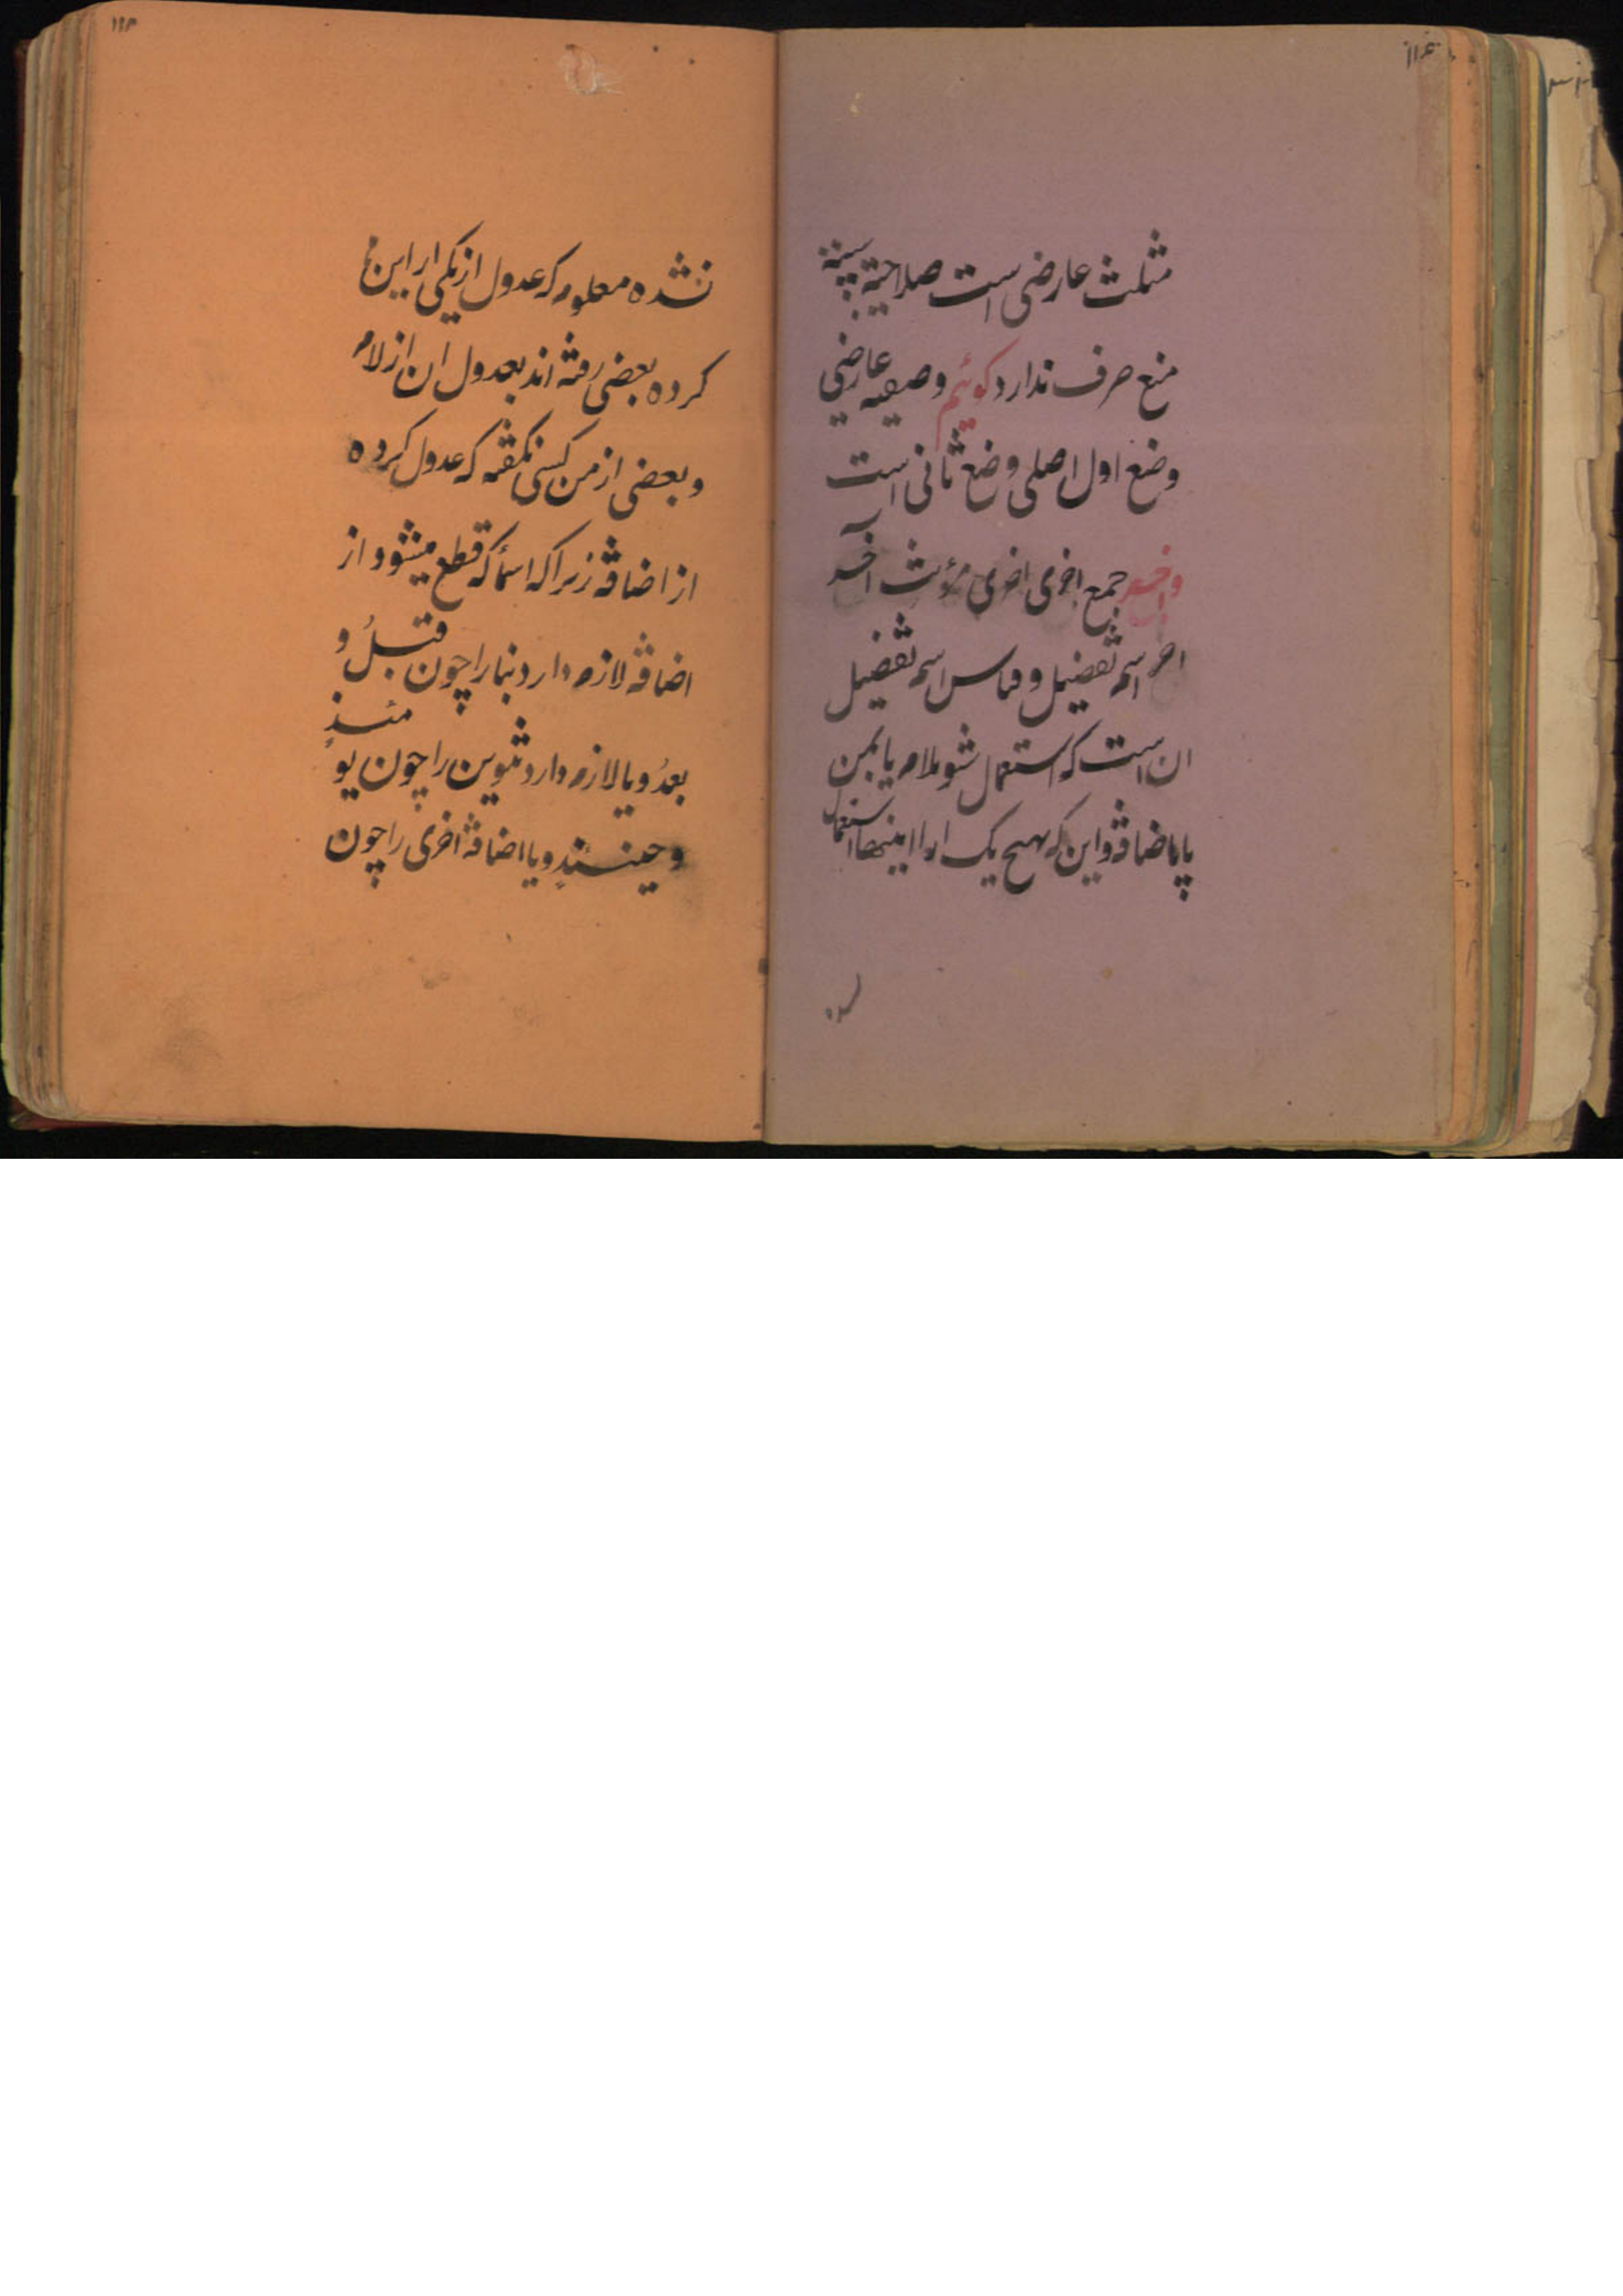 مثلث عارضی است صلاحیته سببیّته
منع صرف ندارد کوئیم وصفیه عارضی
وضع اول اصلی وضع ثانی است
واخر جمع اخری اخری مؤنث اخر
اخر اسم تفضیل وقیاس اسم تفضیل
ان است که استعمال شو بلام یا بمن
یا باضافه واین که هیچ یک
نشده معلوم که عدول از یکی از این‌ها
کرده بعضی رفته اند بعدول ان از لام
وبعضی از من کسی نکفته که عدول کرده
از اضافه زیرا که اسما که قطع میشود از
اضافه لازم دارد بنا را چون قبلُ و
بعدُ ویا لازم دارد تنوین را چون یومئذٍ
وحینئذٍ ویا اضافه اخری را چون